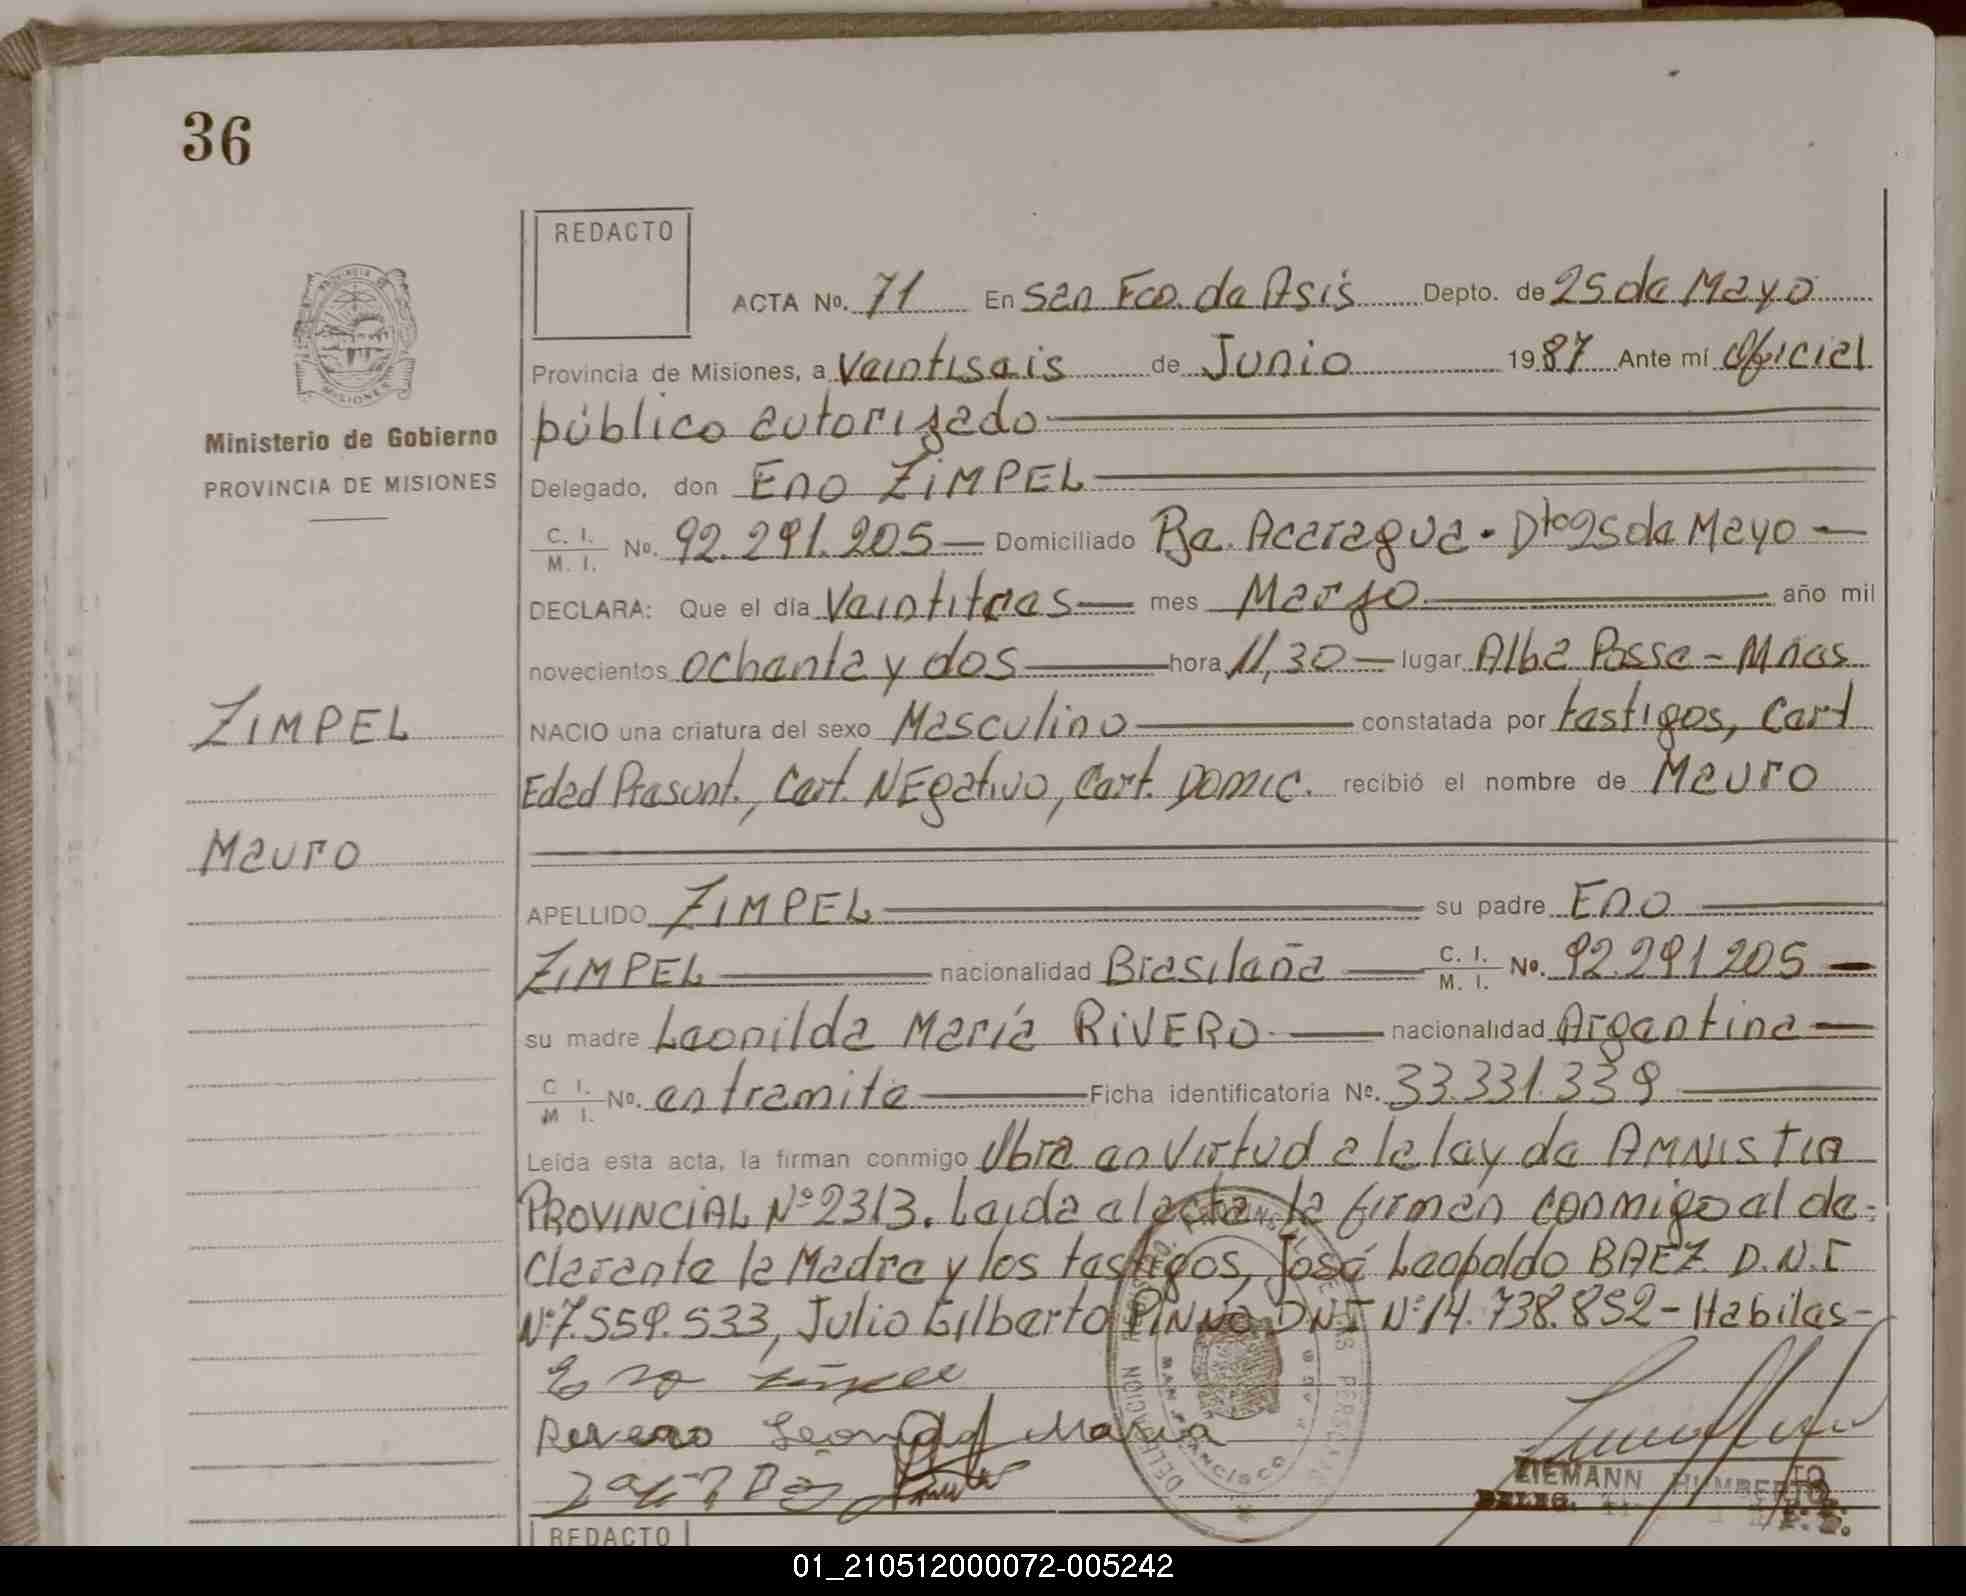 36
REDACTO
PROVINCIA DE
MISIONES
Ministerio de Gobierno
PROVINCIA DE MISIONES
ZIMPEL
Mauro
ACTA No. 71 En San Fco. de Asis Depto. de 25 de Mayo
Provincia de Misiones, a Veintiseis de Junio 1987 Ante mí Oficial
público autorizado
Delegado, don Eno ZIMPEL
C. I. / M. I. No. 92.291.205 — Domiciliado Pje. Acaragua - Dto 25 de Mayo —
DECLARA: Que el día Veintitres — mes Marzo año mil
novecientos ochenta y dos hora 11,30 — lugar Alba Posse - Mnes
NACIO una criatura del sexo Masculino constatada por testigos, Cert
Edad Presunt., Cert. NEgativo, Cert. Domic. recibió el nombre de Mauro
APELLIDO ZIMPEL su padre Eno
ZIMPEL nacionalidad Brasileña C. I. / M. I. No. 92.291205 —
su madre Leonilda María RIVERO nacionalidad Argentina —
C I. / M I. No. en tramite Ficha identificatoria No. 33.331.339
Leída esta acta, la firman conmigo Obra en Virtud a la ley de AMNISTIA
PROVINCIAL Nº 2313. Leida el acta la firman conmigo el de-
clarante la Madre y los testigos, José Leopoldo BAEZ D.N.I
Nº 7.559.533, Julio Gilberto PINNO DNI Nº 14.738.852 - Habiles -
Eno
Maria
ZIEMANN HUMBERTO
DELEG.
REDACTO
01_210512000072-005242